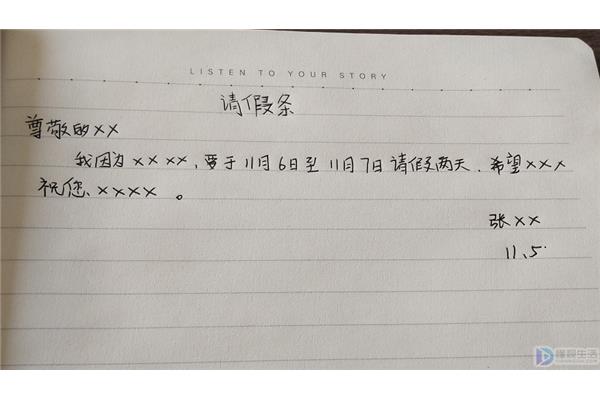 LISTEN TO YOUR STORY
请假条
尊敬的××
我因为××××,要于11月6日至11月7日请假两天.希望×××
祝您、××××。
张××
11.5.
懂视生活